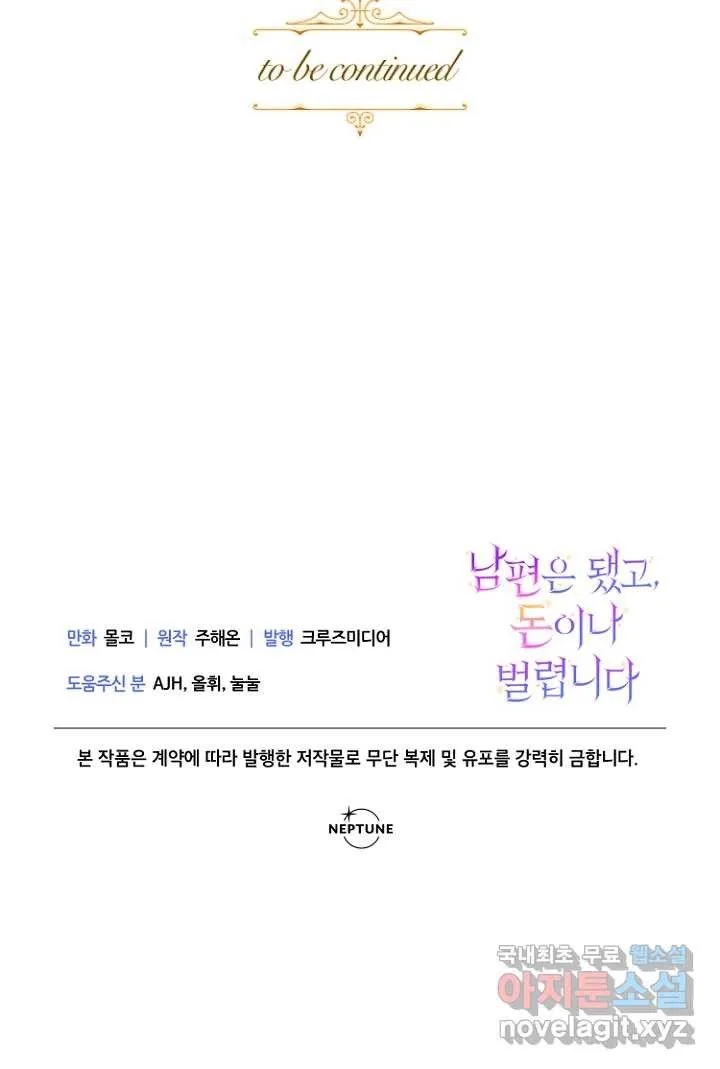 to be continued
남편은 됐고,
돈이나
벌렵니다
만화 몰코 | 원작 주해온 | 발행 크루즈미디어
도움주신 분 AJH, 올휘, 눌눌
본 작품은 계약에 따라 발행한 저작물로 무단 복제 및 유포를 강력히 금합니다.
NEPTUNE
국내최초 무료 웹소설
아지툰소설
novelagit.xyz